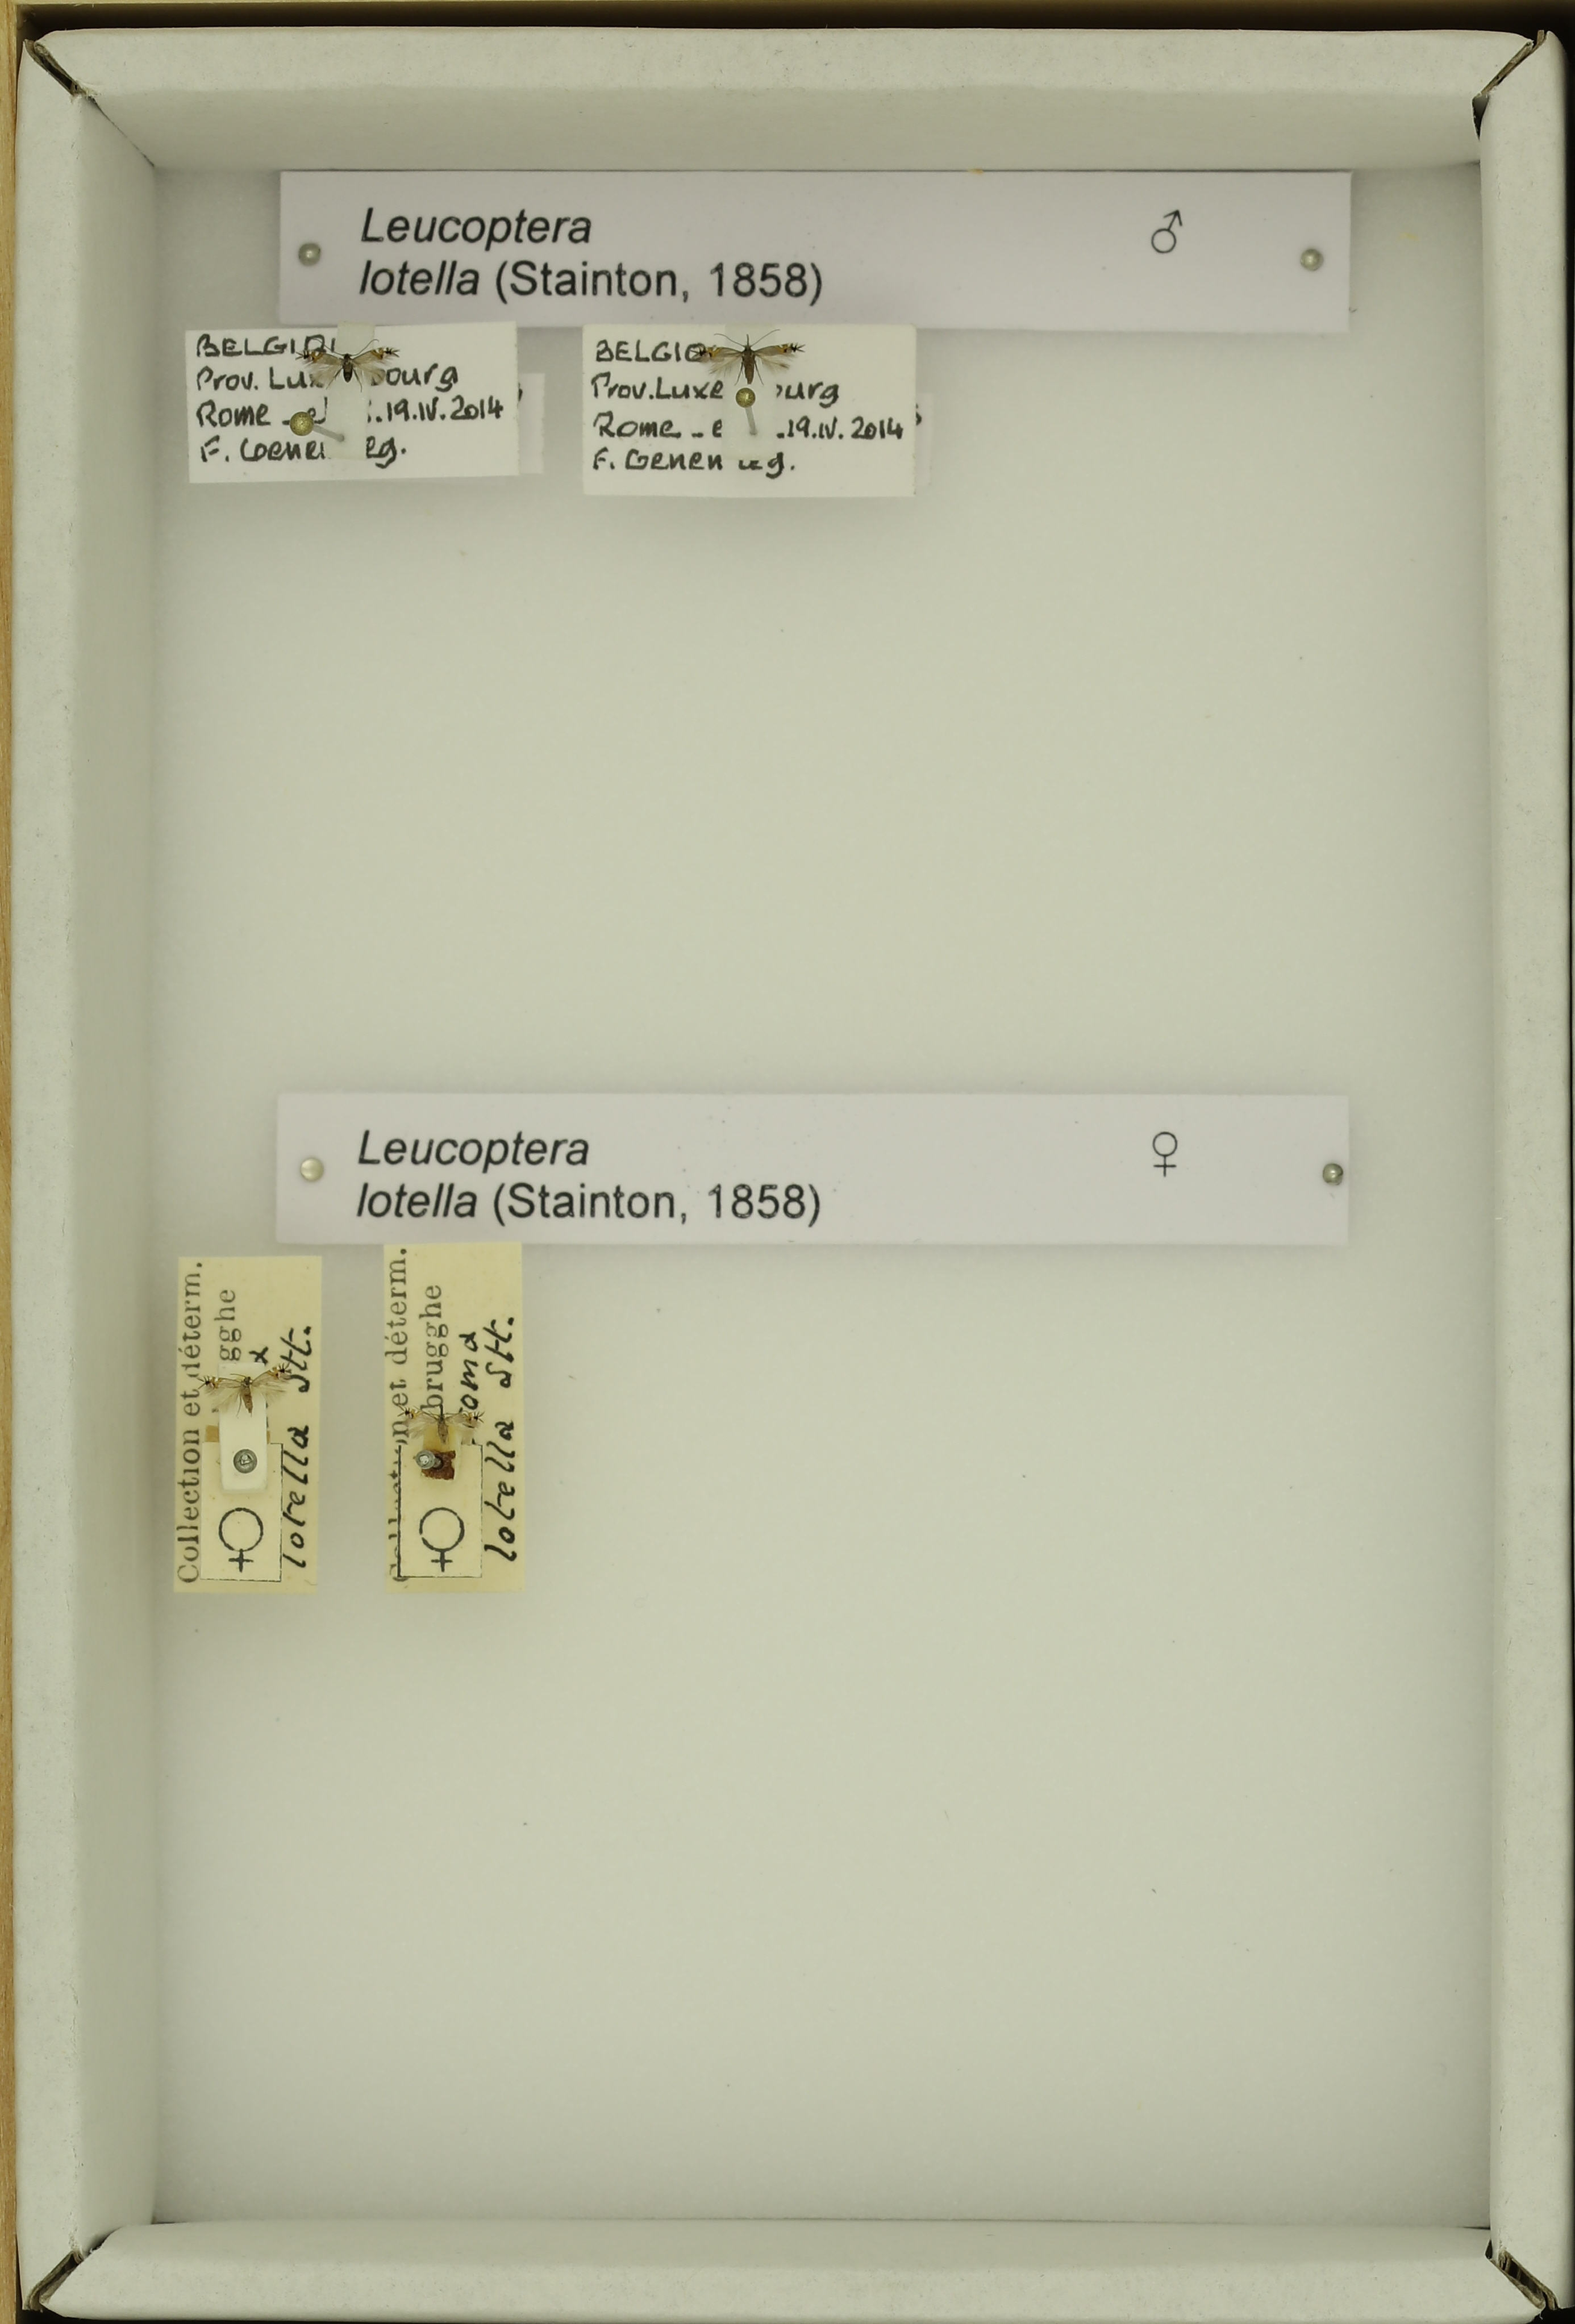 Leucoptera ♂
lotella (Stainton, 1858)
BELGI
Prov. Lux bourg
Rome - el .19.IV.2014
F. Coenen eg.
BELGI
Prov. Luxe urg
Rome - e .19.IV.2014
F. Coenen eg.
Leucoptera ♀
lotella (Stainton, 1858)
Collection et déterm.
gghe
lotella Stt.
♀
et déterm.
brugghe
oma
lotella Stt.
♀